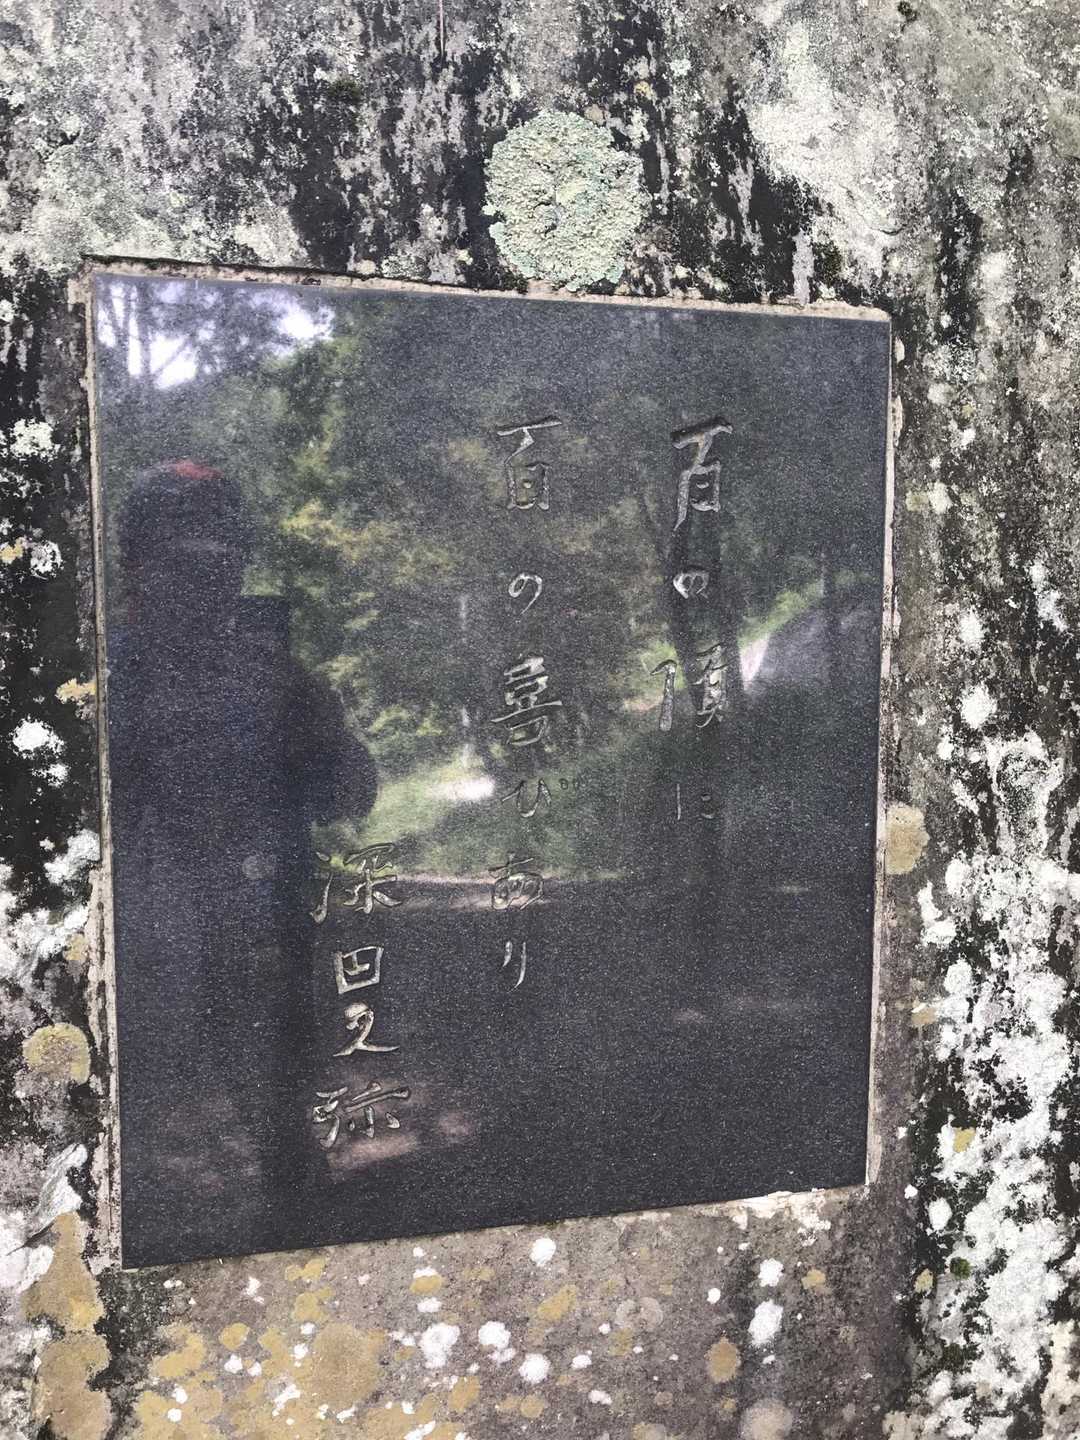 百の頂に
百の喜びあり
深田久弥